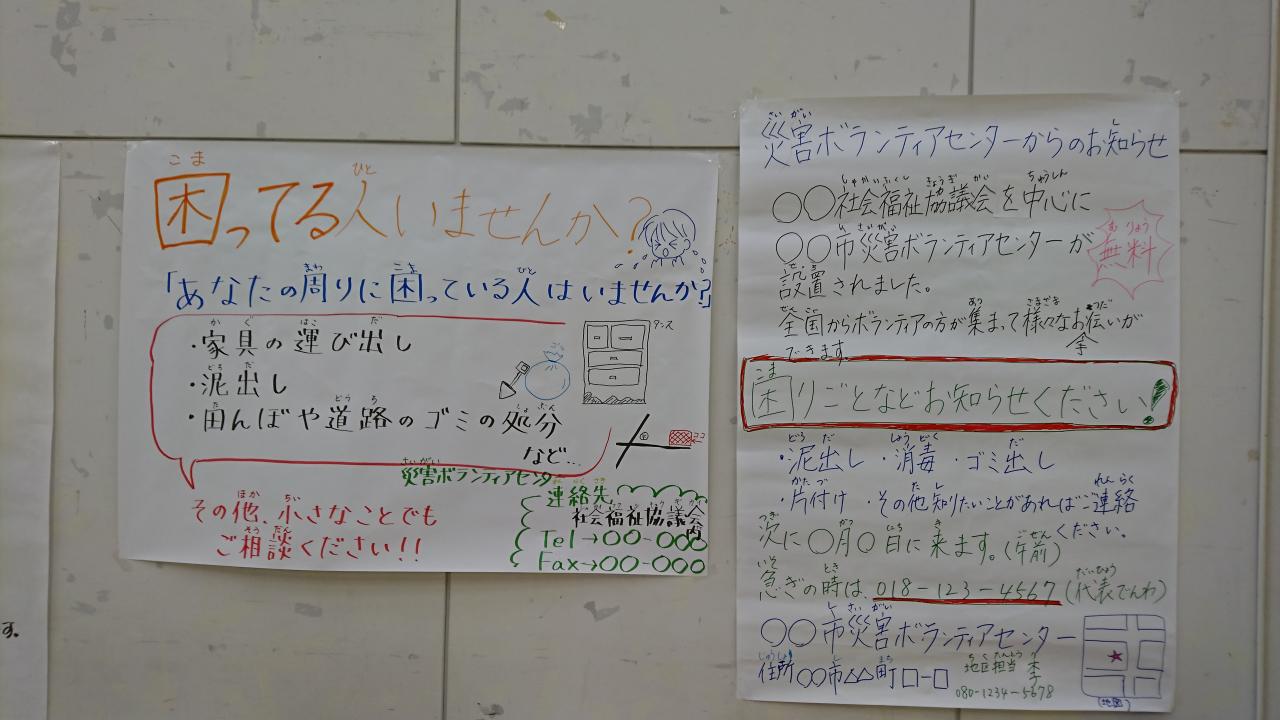 す。
困ってる人いませんか?
「あなたの周りに困っている人はいませんか?」
・家具の運び出し
・泥出し
・田んぼや道路のゴミの処分
など…
タンス
ゴミ
災害ボランティアセンター
連絡先
社会福祉協議会内
Tel→〇〇-〇〇〇
Fax→〇〇-〇〇〇
その他、小さなことでも
ご相談ください!!
災害ボランティアセンターからのお知らせ
〇〇社会福祉協議会を中心に
〇〇市災害ボランティアセンターが
設置されました。
無料
全国からボランティアの方が集まって様々なお手伝いが
できます。
困りごとなどお知らせください!
・泥出し・消毒・ゴミ出し
・片付け・その他知りたいことがあればご連絡
ください。
次に〇月〇日に来ます。(午前)
急ぎの時は、018-123-4567(代表でんわ)
〇〇市災害ボランティアセンター
住所〇〇市△△町□-□
地区担当
080-1234-5678
(地図)